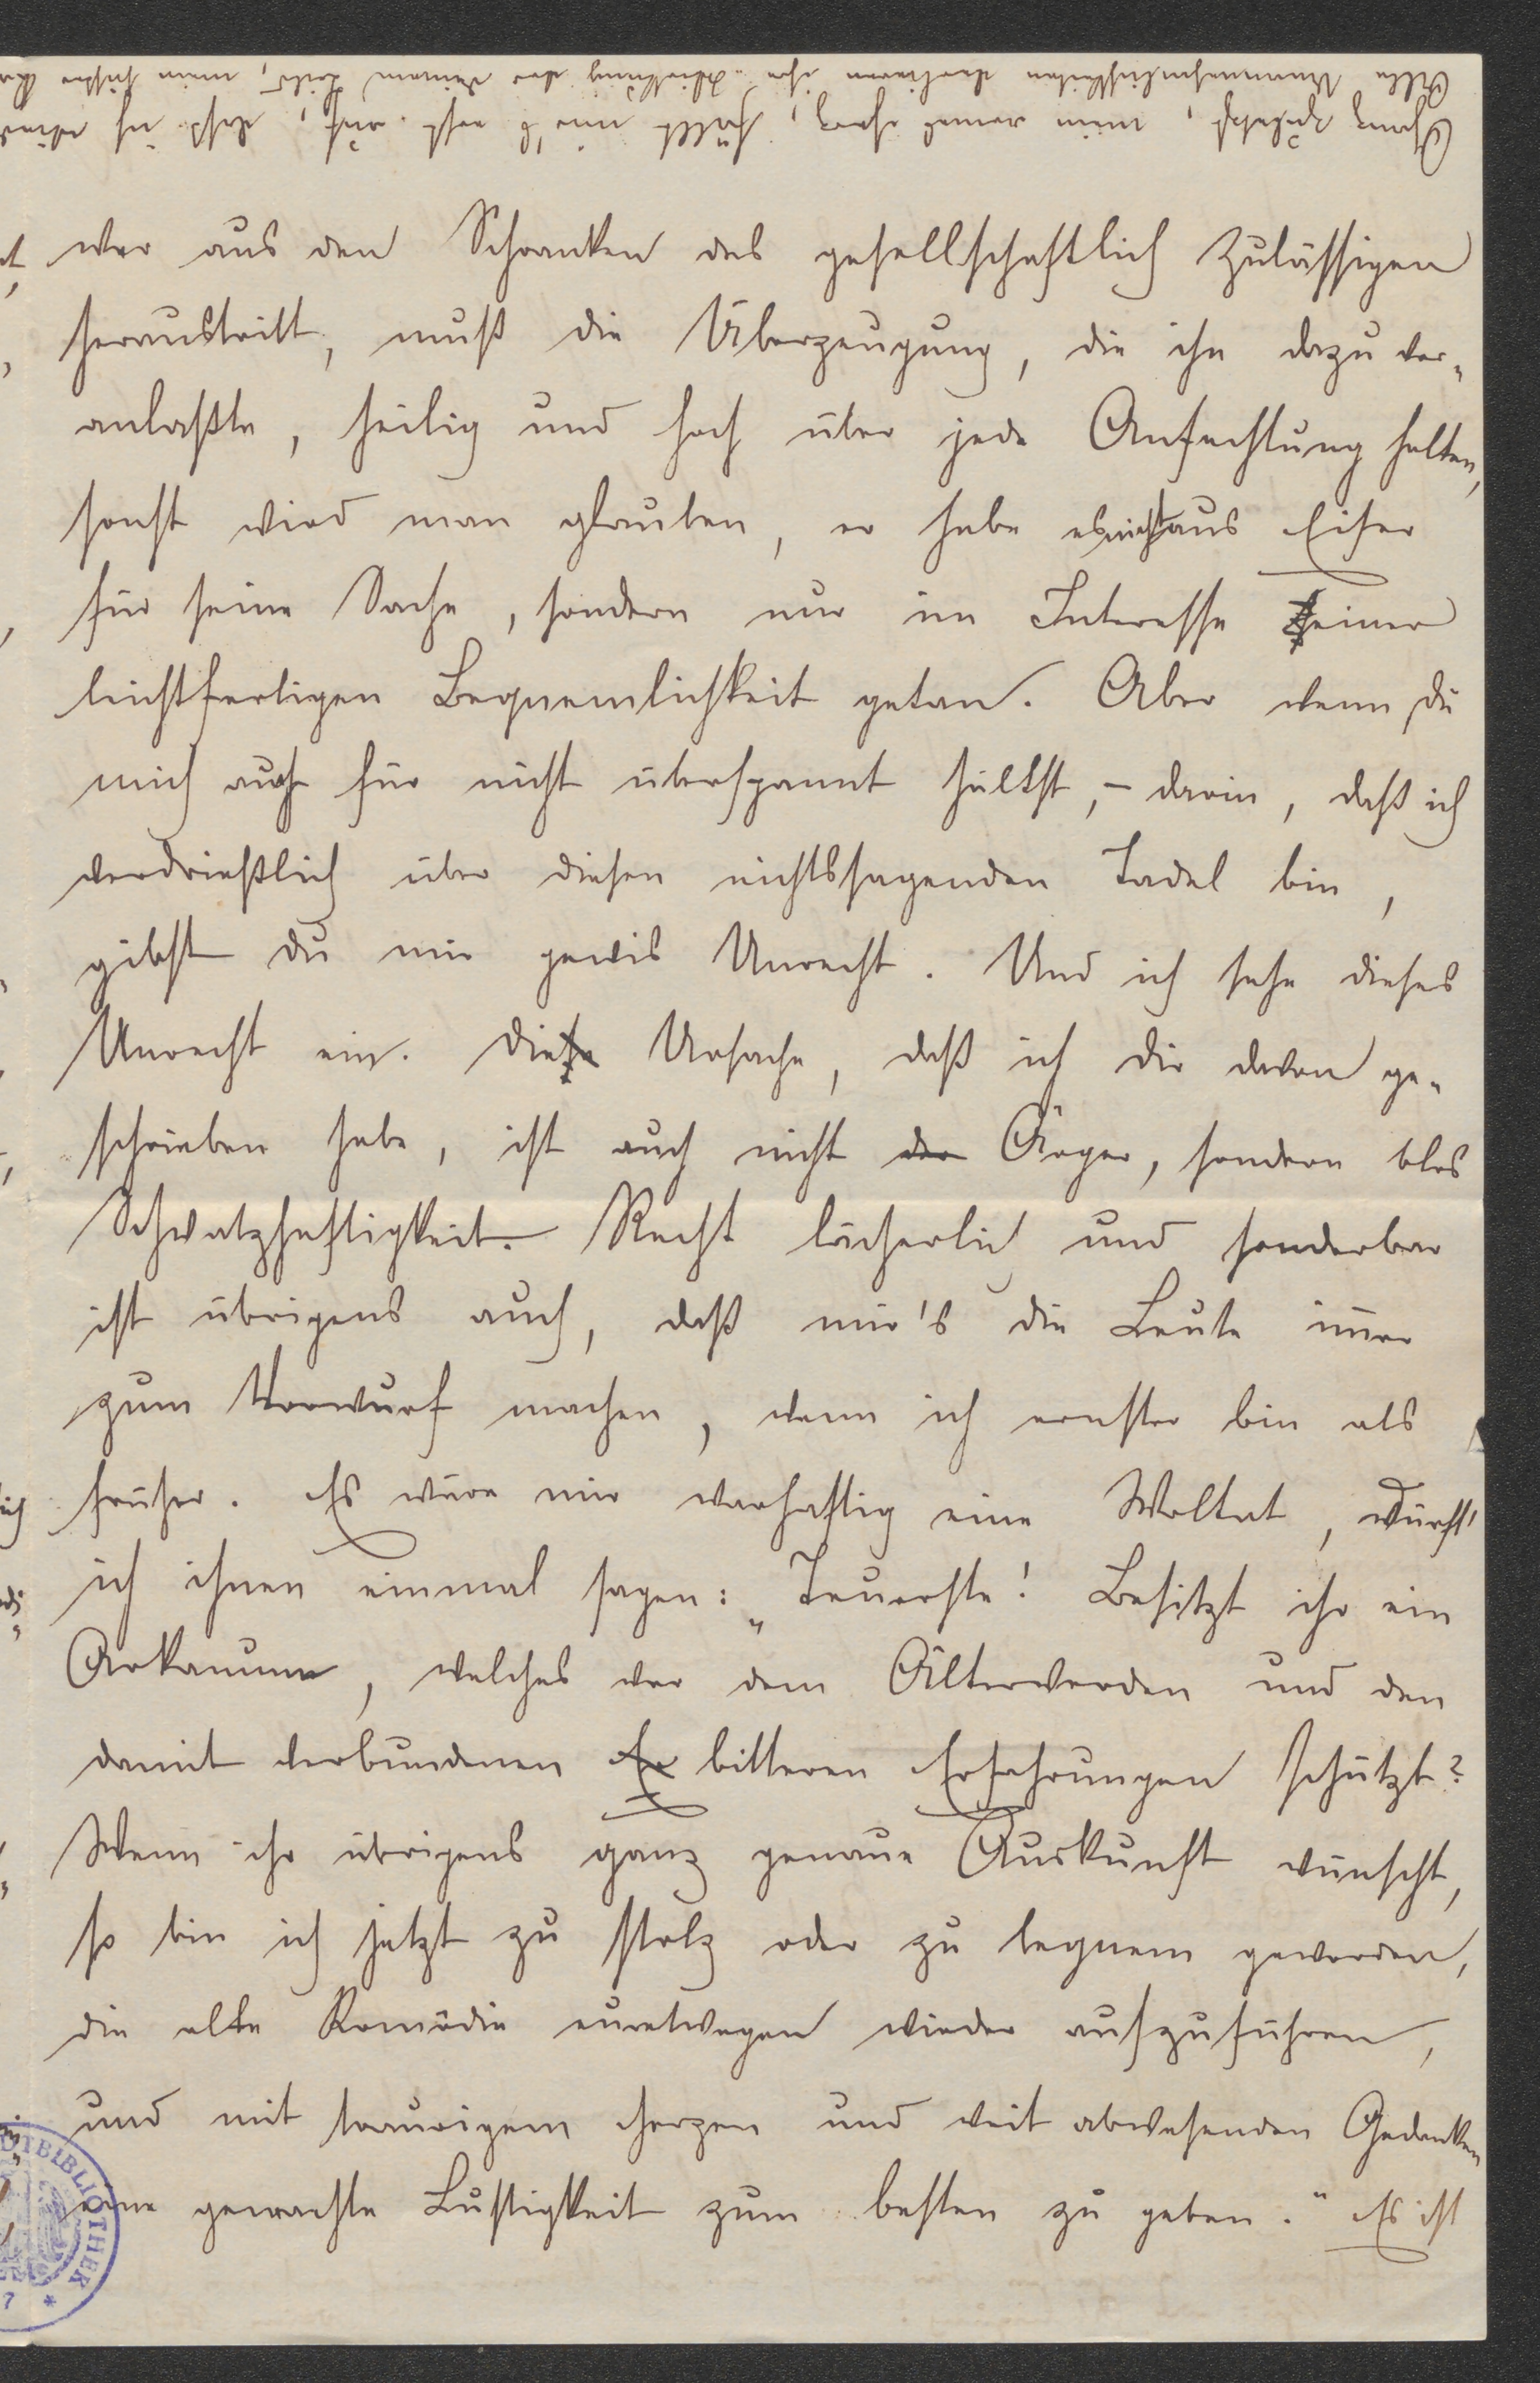 Alle Unannehmlichkeiten ihre Wirkung der deinem Leid, meine
Ganz zuletzt, mein armes Herz, fällt mir's erst auf, dass ich
wer aus den Schranken des gesellschaftlich Zulässigen
heraustritt, muß die Überzeugung, die ihn dazu ver-
anlaßte, heilig und hoch über jede Anfechtung halten,
sonst wird man glauben, er habe es nicht aus Eifer
für seine Sache, sondern nur im Interesse seiner
leichtfertigen Bequemlichkeit getan. Aber wenn du
mich auch für nicht überspannt hältst, – darin, daß ich
verdrießlich über diesen nichtssagenden Tadel bin,
gibst du mir gewis Unrecht. Und ich sehe dieses
Unrecht ein. Die Ursache, daß ich dir davon ge-
schrieben habe, ist auch nicht der Ärger, sondern blos
Schwatzhaftigkeit. Recht lächerlich und sonderbar
ist übrigens auch, daß mir's die Leute im̄er
zum Vorwurf machen, wenn ich ernster bin als
früher. Es wäre mir warhaftig eine Woltat, dürft'
ich ihnen einmal sagen: „Teuerste! Besitzt ihr ein
Arkanum, welches vor dem Älterwerden und den
damit verbundenen Er bitteren Erfahrungen schützt?
Wenn ihr übrigens ganz genaue Auskunft wünscht,
so bin ich jetzt zu stolz oder zu bequem geworden,
die alte Komödie euretwegen wieder aufzuführen,
und mit traurigem Herzen und weit abwesenden Gedanken
eine gemachte Lustigkeit zum besten zu geben." Es ist
DTBIBLIOTHEK
7 *